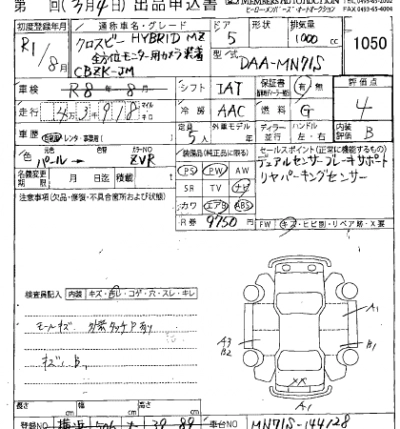 第 回(3月4日)出品申込書 MEMBERS AUTO AUCTION
初度登録年月 通称車名・グレード ドア 形状 排気量
R1/8月 クロスビー HYBRID MZ 5 1000cc 1050
全方位モニター用カメラ装着
CBZK-JM 型式 DAA-MN71S
車検 R8年8月 シフト IAT 保証書 有・無 評価点
走行 4万3,918 冷房 AAC 燃料 G 4
車歴 レンタ・事業用( ) 定員 5人 外車モデル年 ディーラー 並行 ハンドル 左・右 内装評価 B
色 色替 カラーNO 装備品(純正品に限る) セールスポイント(正常に機能するもの)
パール ZVR デュアルセンサーブレーキサポート
名義変更期限 月 日迄 積載 t PS PW AW リヤパーキングセンサー
注意事項(欠品・損傷・不具合箇所および状態) SR TV ナビ
カワ エアB ABS
R券 9750円 FW キズ・ヒビ割・リペア跡・X要
検査員記入 内装 キズ・汚レ・コゲ・穴・スレ・キレ
モールキズ 外装タッチPあり
キズ、B、
A1
A3
B2
B1
XX
A1
長さ cm 幅 cm 高さ cm
登録NO 横浜 506 39-89 車台NO MN71S-144128